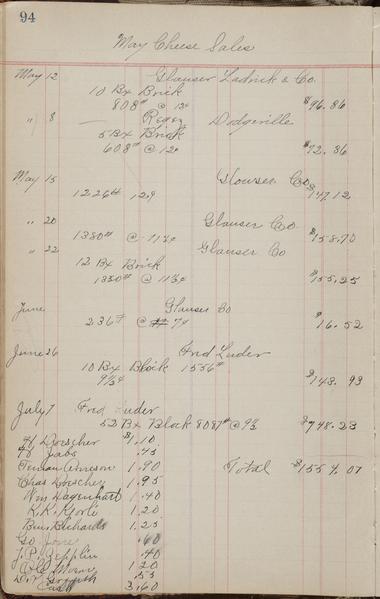 94
May Cheese Sales
May 12 Glauser Ladrick & Co.
10 Bx Brick
808# @ 12¢ $96.86
" 8 — Dodgeville
5 Bx Brick
608# @ 12¢ $72.36
May 15 Glauser Co
1226# 12¢ $147.12
" 20 Glauser Co
1380# @ 11½¢ $158.70
" 22 Glauser Co
12 Bx Brick
1350# @ 11½¢ $155.25
June Glauser Co
236# @ 7¢ $16.52
June 26 Fred Luder
10 Bx Block 1556#
9¼¢ $143.93
July 7 Fred Luder
52 Bx Block 8087# @ 9¼ $748.23
H Dorscher $1.10
Jabs .45
1.90 Total $1554.07
Chas Dorscher 1.95
Wm Dagenhart 1.40
1.20
Ben Richards 1.25
Geo Jone .60
J. P. Zepplin .40
1.20
.55
3.60